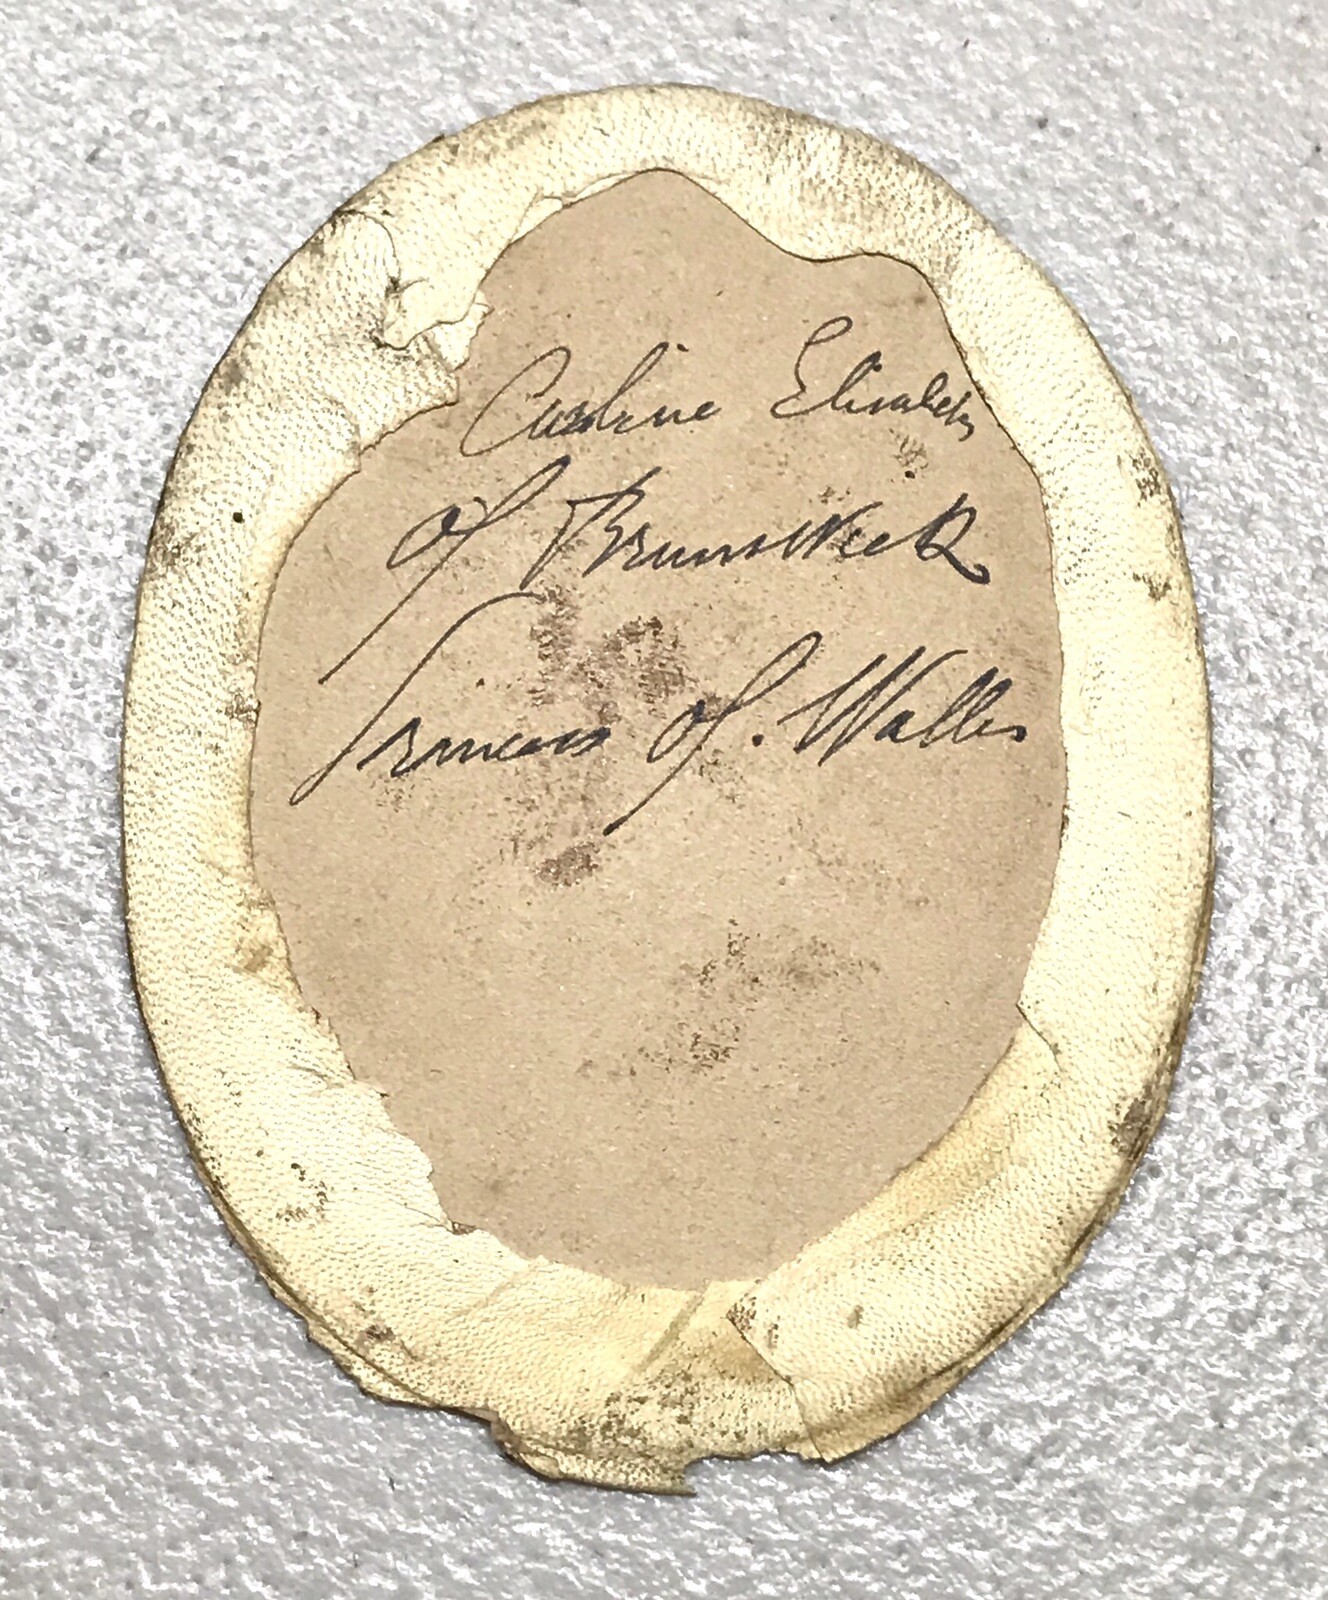 Caroline Elisabeth
of Brunswick
Princess of. Walles